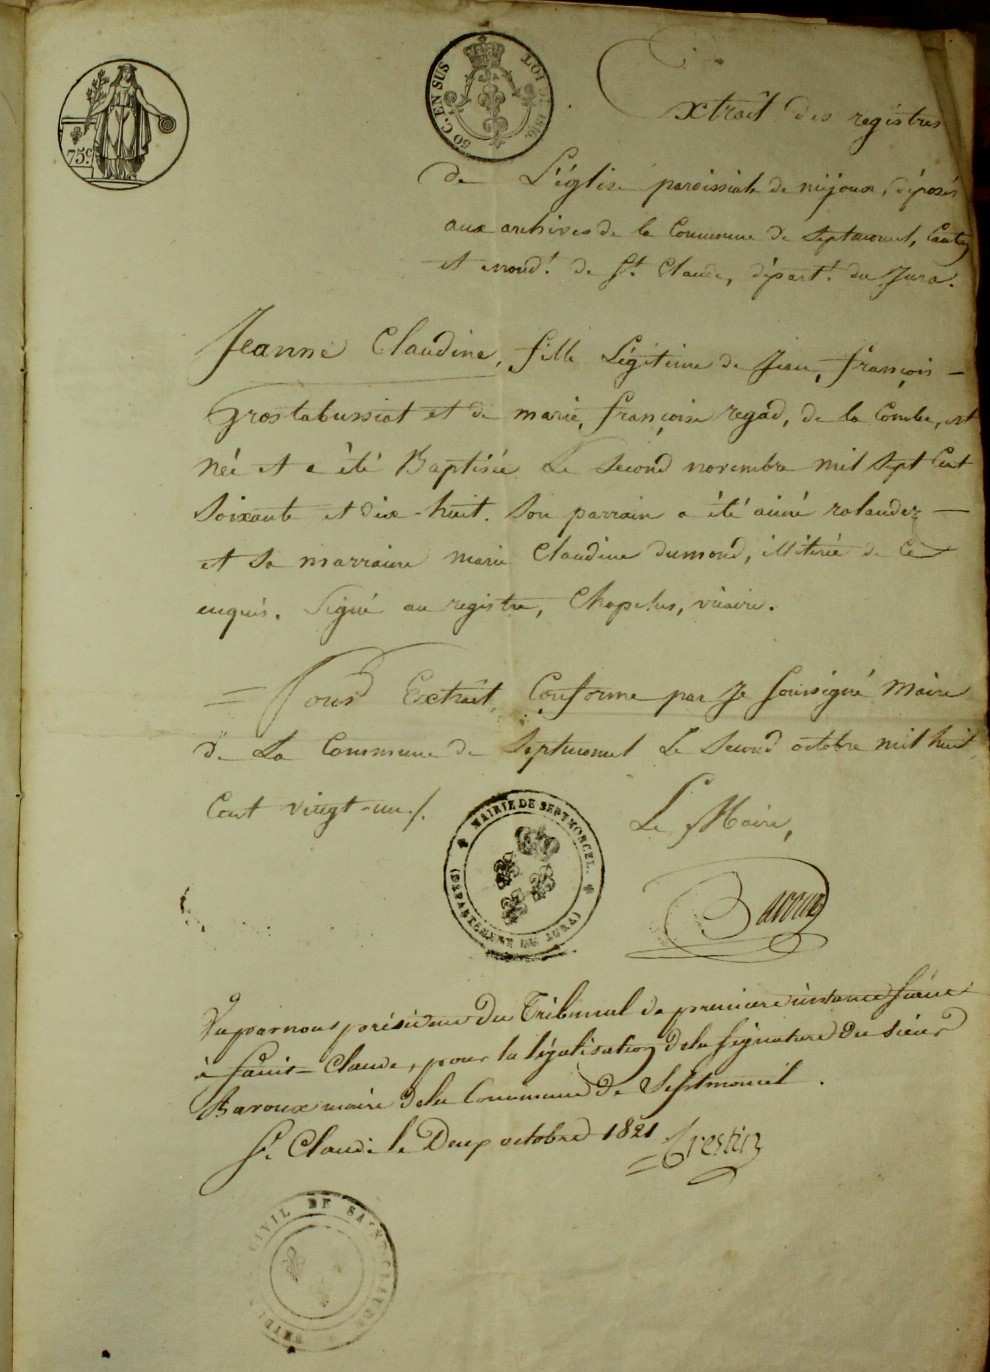 75c
50 C. EN SUS LOI DE 1816.
Extrait des registres
de L'église paroissiale de mijoux, déposés
aux archives de la Commune de Septmoncel, Canton
et arrond.t de St Claude, départ.t du Jura.
Jeanne Claudine, fille Légitime de Jean, françois —
Grostabussiat et de marie, françoise regad, de la Combe, est
née et a été Baptisée Le Second novembre mil Sept Cent
Soixante et dix-huit. Son parrain a été aimé rolandez —
et Sa marraine marie Claudine dumond, illiterée de Ce
enquis. Signé au registre, Chapelus, vicaire.
= Pour Extrait, Conforme par Je Soussigné Maire
de La Commune de Septmoncel Le Second octobre mil huit
Cent vingt-un./.
Le Maire,
MAIRIE DE SEPTMORCEL.
(DÉPARTEMENT DU JURA)
Baroux
Vu par nous président Du Tribunal de premiere instance Séant
à Saint-Claude, pour la légalisation de la Signature du Sieur
Baroux maire de la Commune de Septmoncel.
St. Claude le Deux octobre 1821 Crestin
CIVIL DE SAINT-CLAUDE